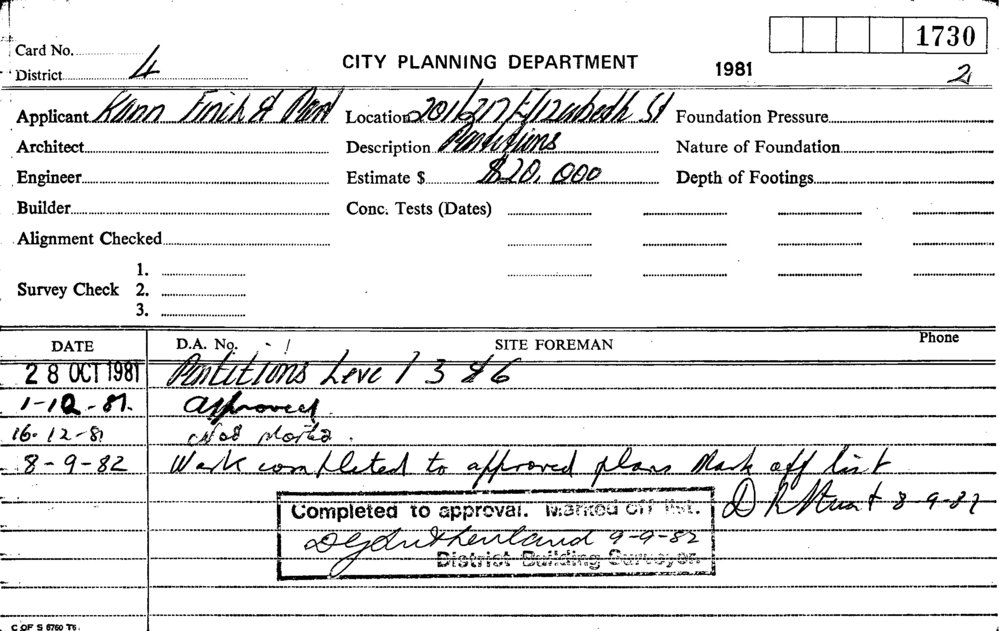 1730
Card No.
District 4
CITY PLANNING DEPARTMENT
1981
2
Applicant Kann Finch &
Location 201/217 Elizabeth St
Foundation Pressure
Architect
Description Partitions
Nature of Foundation
Engineer
Estimate $ $20,000
Depth of Footings
Builder
Conc. Tests (Dates)
Alignment Checked
1.
Survey Check 2.
3.
DATE D.A. No. SITE FOREMAN Phone
28 OCT 1981 Partitions Level 3 & 6
1-12-81. approved.
16.12-81 Not started.
8-9-82 Work completed to approved plans Mark off list
8-9-82
Completed to approval. Marked off list.
D G Sutherland 9-9-82
District Building Surveyor.
C OF S 6760 T6.